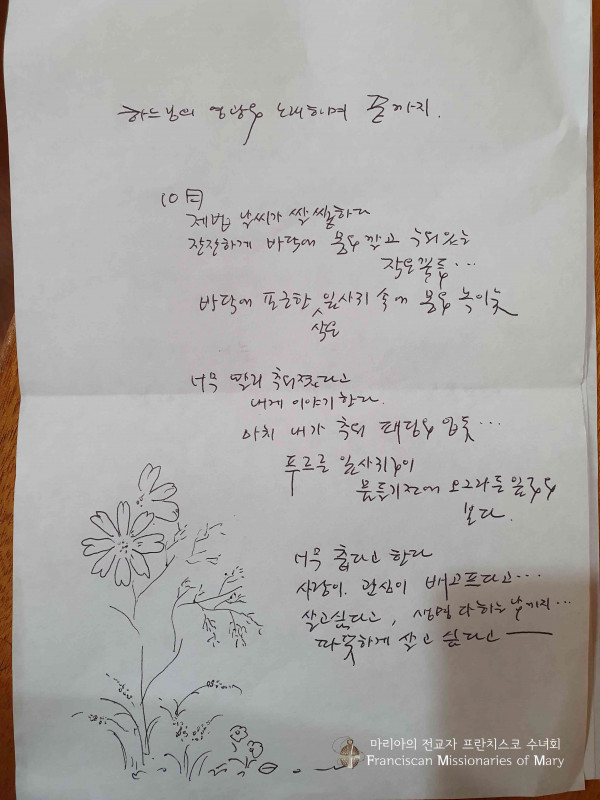 하느님의 영광을 노래하며 끝까지.
10月
제법 날씨가 쌀쌀하다
잔잔하게 바닥에 몸을 깔고 누워있는
작은 꽃들...
바닥에 포근한 잎사귀 속에 몸을 녹이듯
작은
너무 빨리 추워졌다고
내게 이야기한다.
마치 내가 추워 패딩을 입듯...
푸르른 잎사귀들이
물들기전에 오그라든 잎들을
보다.
너무 춥다고 한다
사랑이. 관심이 배고프다고...
살고싶다고, 생명 다하는 날까지...
따뜻하게 살고 싶다고 ―
마리아의 전교자 프란치스코 수녀회
Franciscan Missionaries of Mary